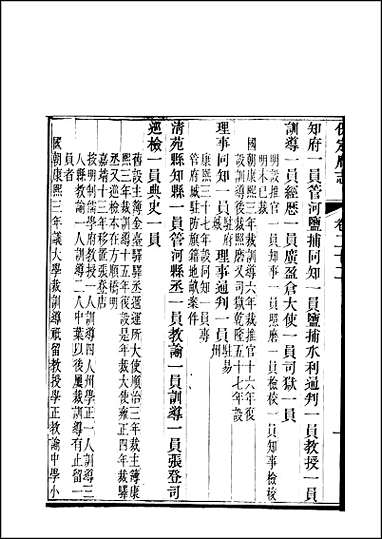 保定府志 卷二十二
知府一員管河鹽捕同知一員鹽捕水利通判一員教授一員
訓導一員經歷一員廣盈倉大使一員司獄一員
明設推官一員知事一員照磨一員檢校一員知事檢校
明末已裁
國朝康熙三年裁訓導又六年裁推官十六年復
設訓導後裁照磨又司獄乾隆五十七年設
理事同知一員駐府城理事通判一員駐易州
康熙三十七年設同知一員專
管府屬駐防旗籍地畝案件
清苑縣知縣一員管河縣丞一員教諭一員訓導一員張登司
巡檢一員典史一員
舊設主簿金臺驛驛丞遞運所大使順治三年裁主簿康
熙三年裁訓導十五年復設是年裁大使雍正四年裁驛
丞又巡檢在方順橋明
嘉靖十三年移置張登店
按明制儒學府教授一人訓導四人州學正一人訓導三
人縣教諭一人訓導二人中葉以後屢裁訓導有止留一
員者
國朝康熙三年議大學裁訓導祇留教授學正教諭中學小